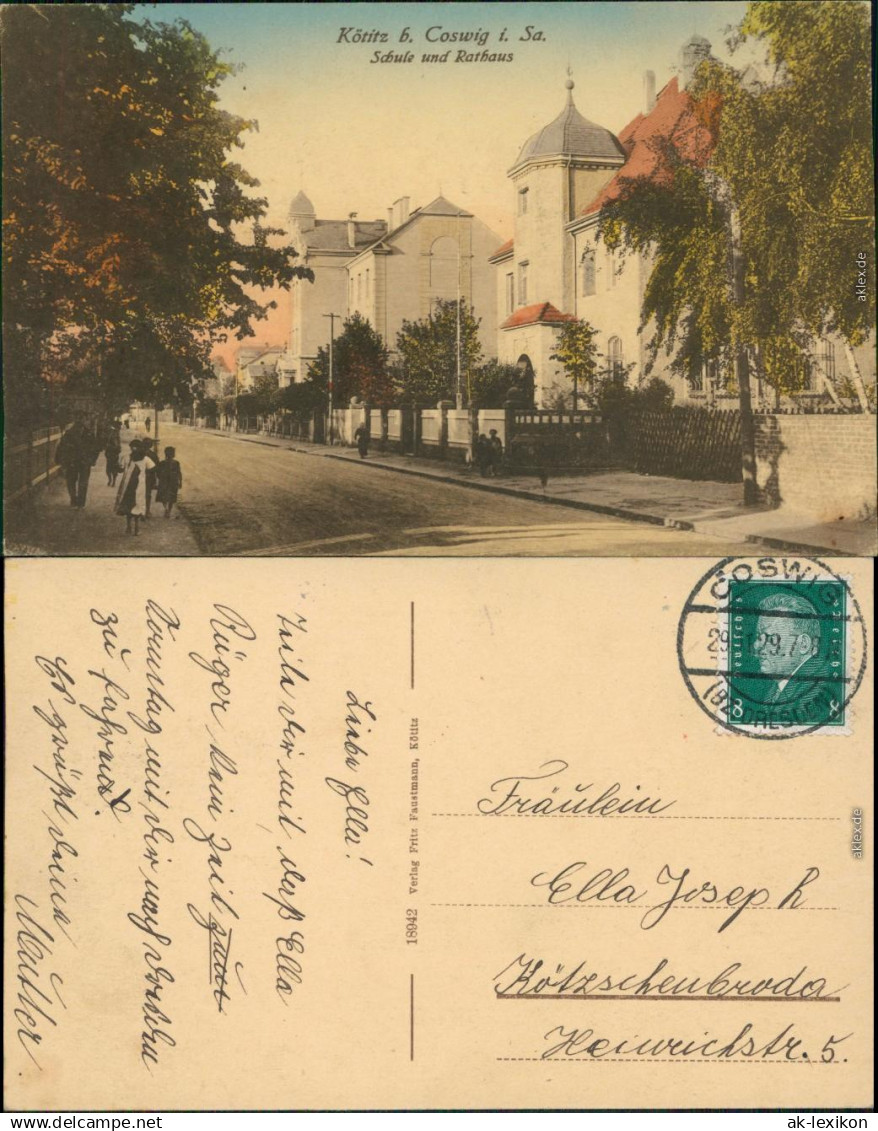 Kötitz b. Coswig i. Sa.
Schule und Rathaus
aklex.de
COSWIG
29.7.
(BZ. DRESDEN)
Deutsches Reich
8 8
Liebe Ella!
Teile Dir mit, daß Ella
Rüger kein Zeit hat
Sonntag mit Dir nach
zu fahren.
Es grüßt Deine
Mutter
18942 Verlag Fritz Faustmann, Kötitz
Fräulein
Ella Joseph
Kötzschenbroda
Heinrichstr. 5.
aklex.de
www.delcampe.net
ak-lexikon